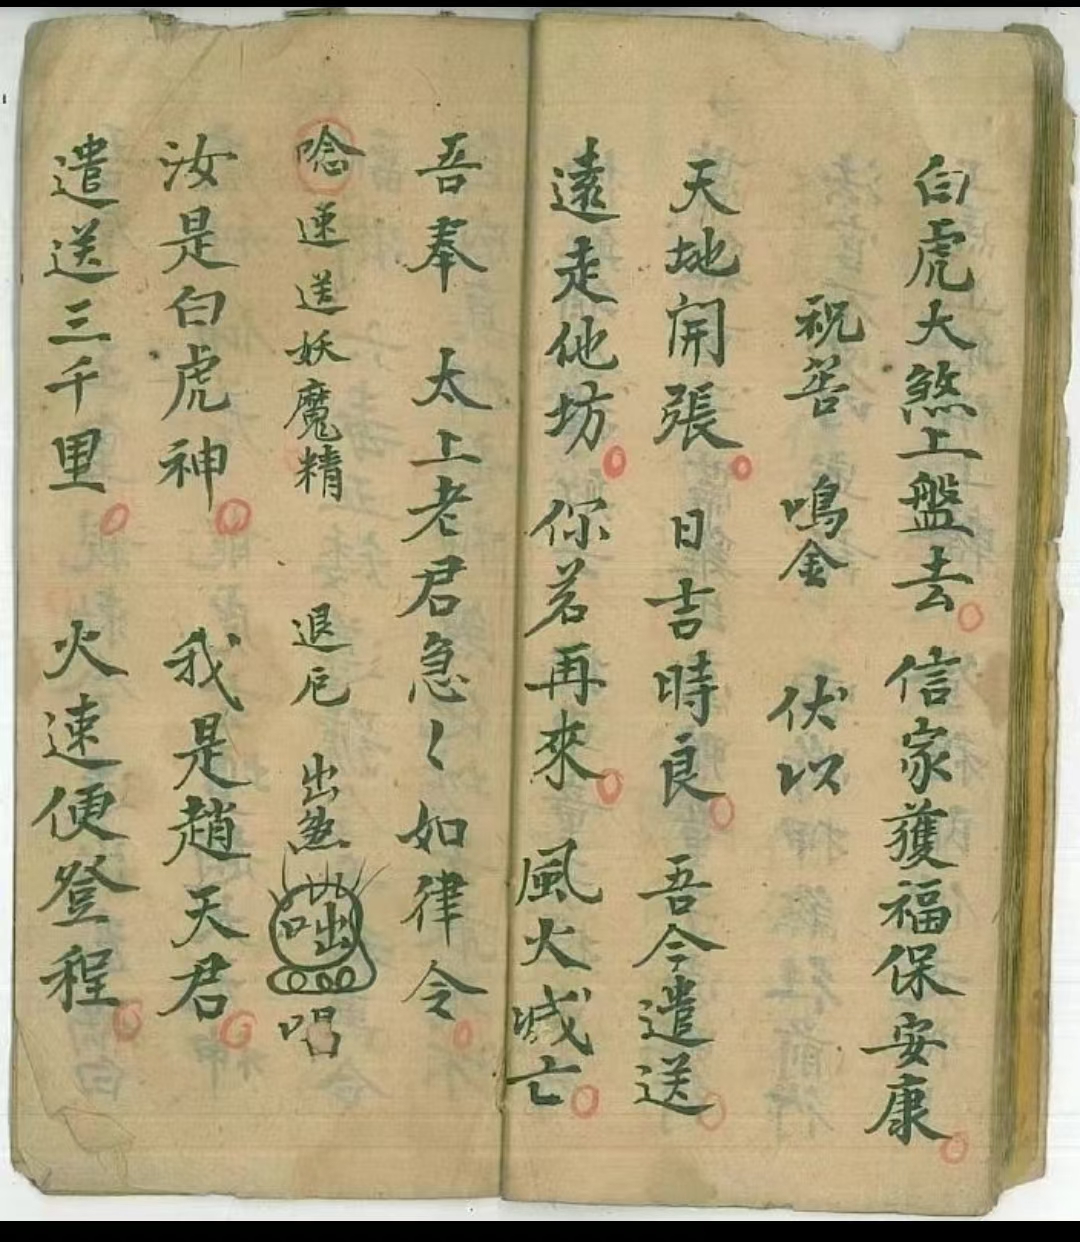 白虎大煞上盤去 信家獲福保安康
祝筶 鳴金 伏以
天地開張 日吉時良 吾今遣送
遠走他坊 你若再來 風火滅亡
吾奉 太上老君急〻如律令
唸速送妖魔精 退卮 出煞 咄 唱
汝是白虎神 我是趙天君
遣送三千里 火速便登程